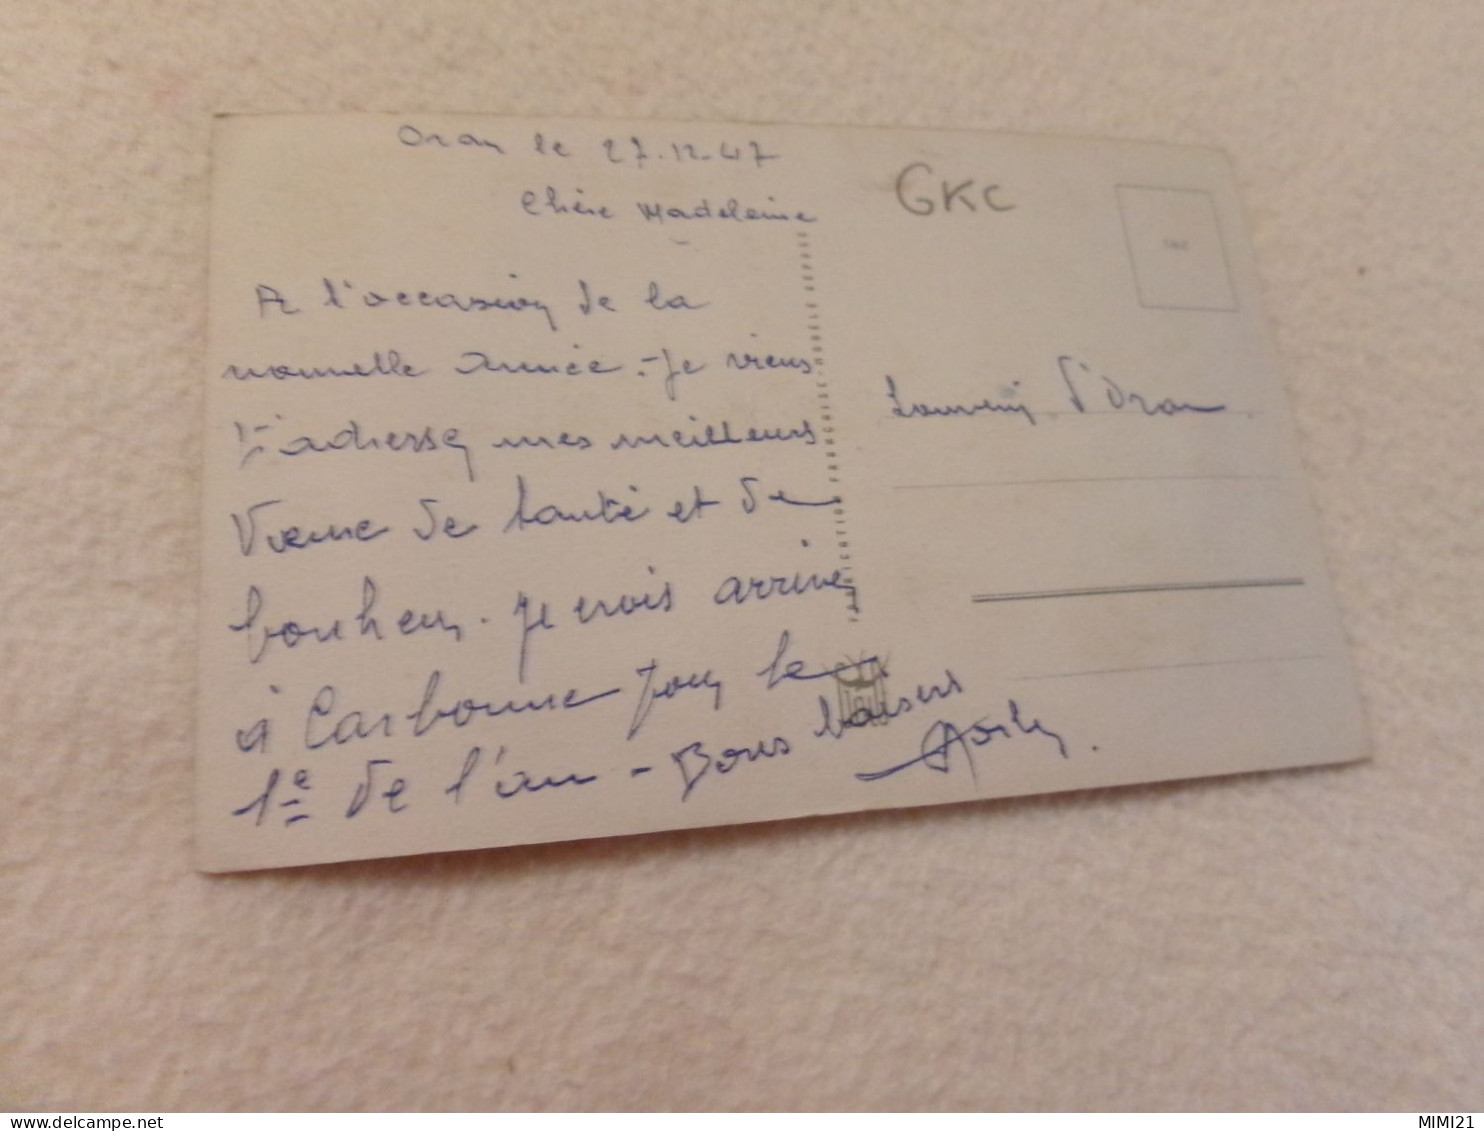 Oran le 27.12.47
Chère Madeleine
A l'occasion de la
nouvelle année. - Je viens
t'adresser mes meilleurs
Vœux de santé et de
bonheur. Je crois arriver
à Carbonne pour le
1e de l'an - Bons baisers
GKC
Souvenir d'Oran
MIMI21